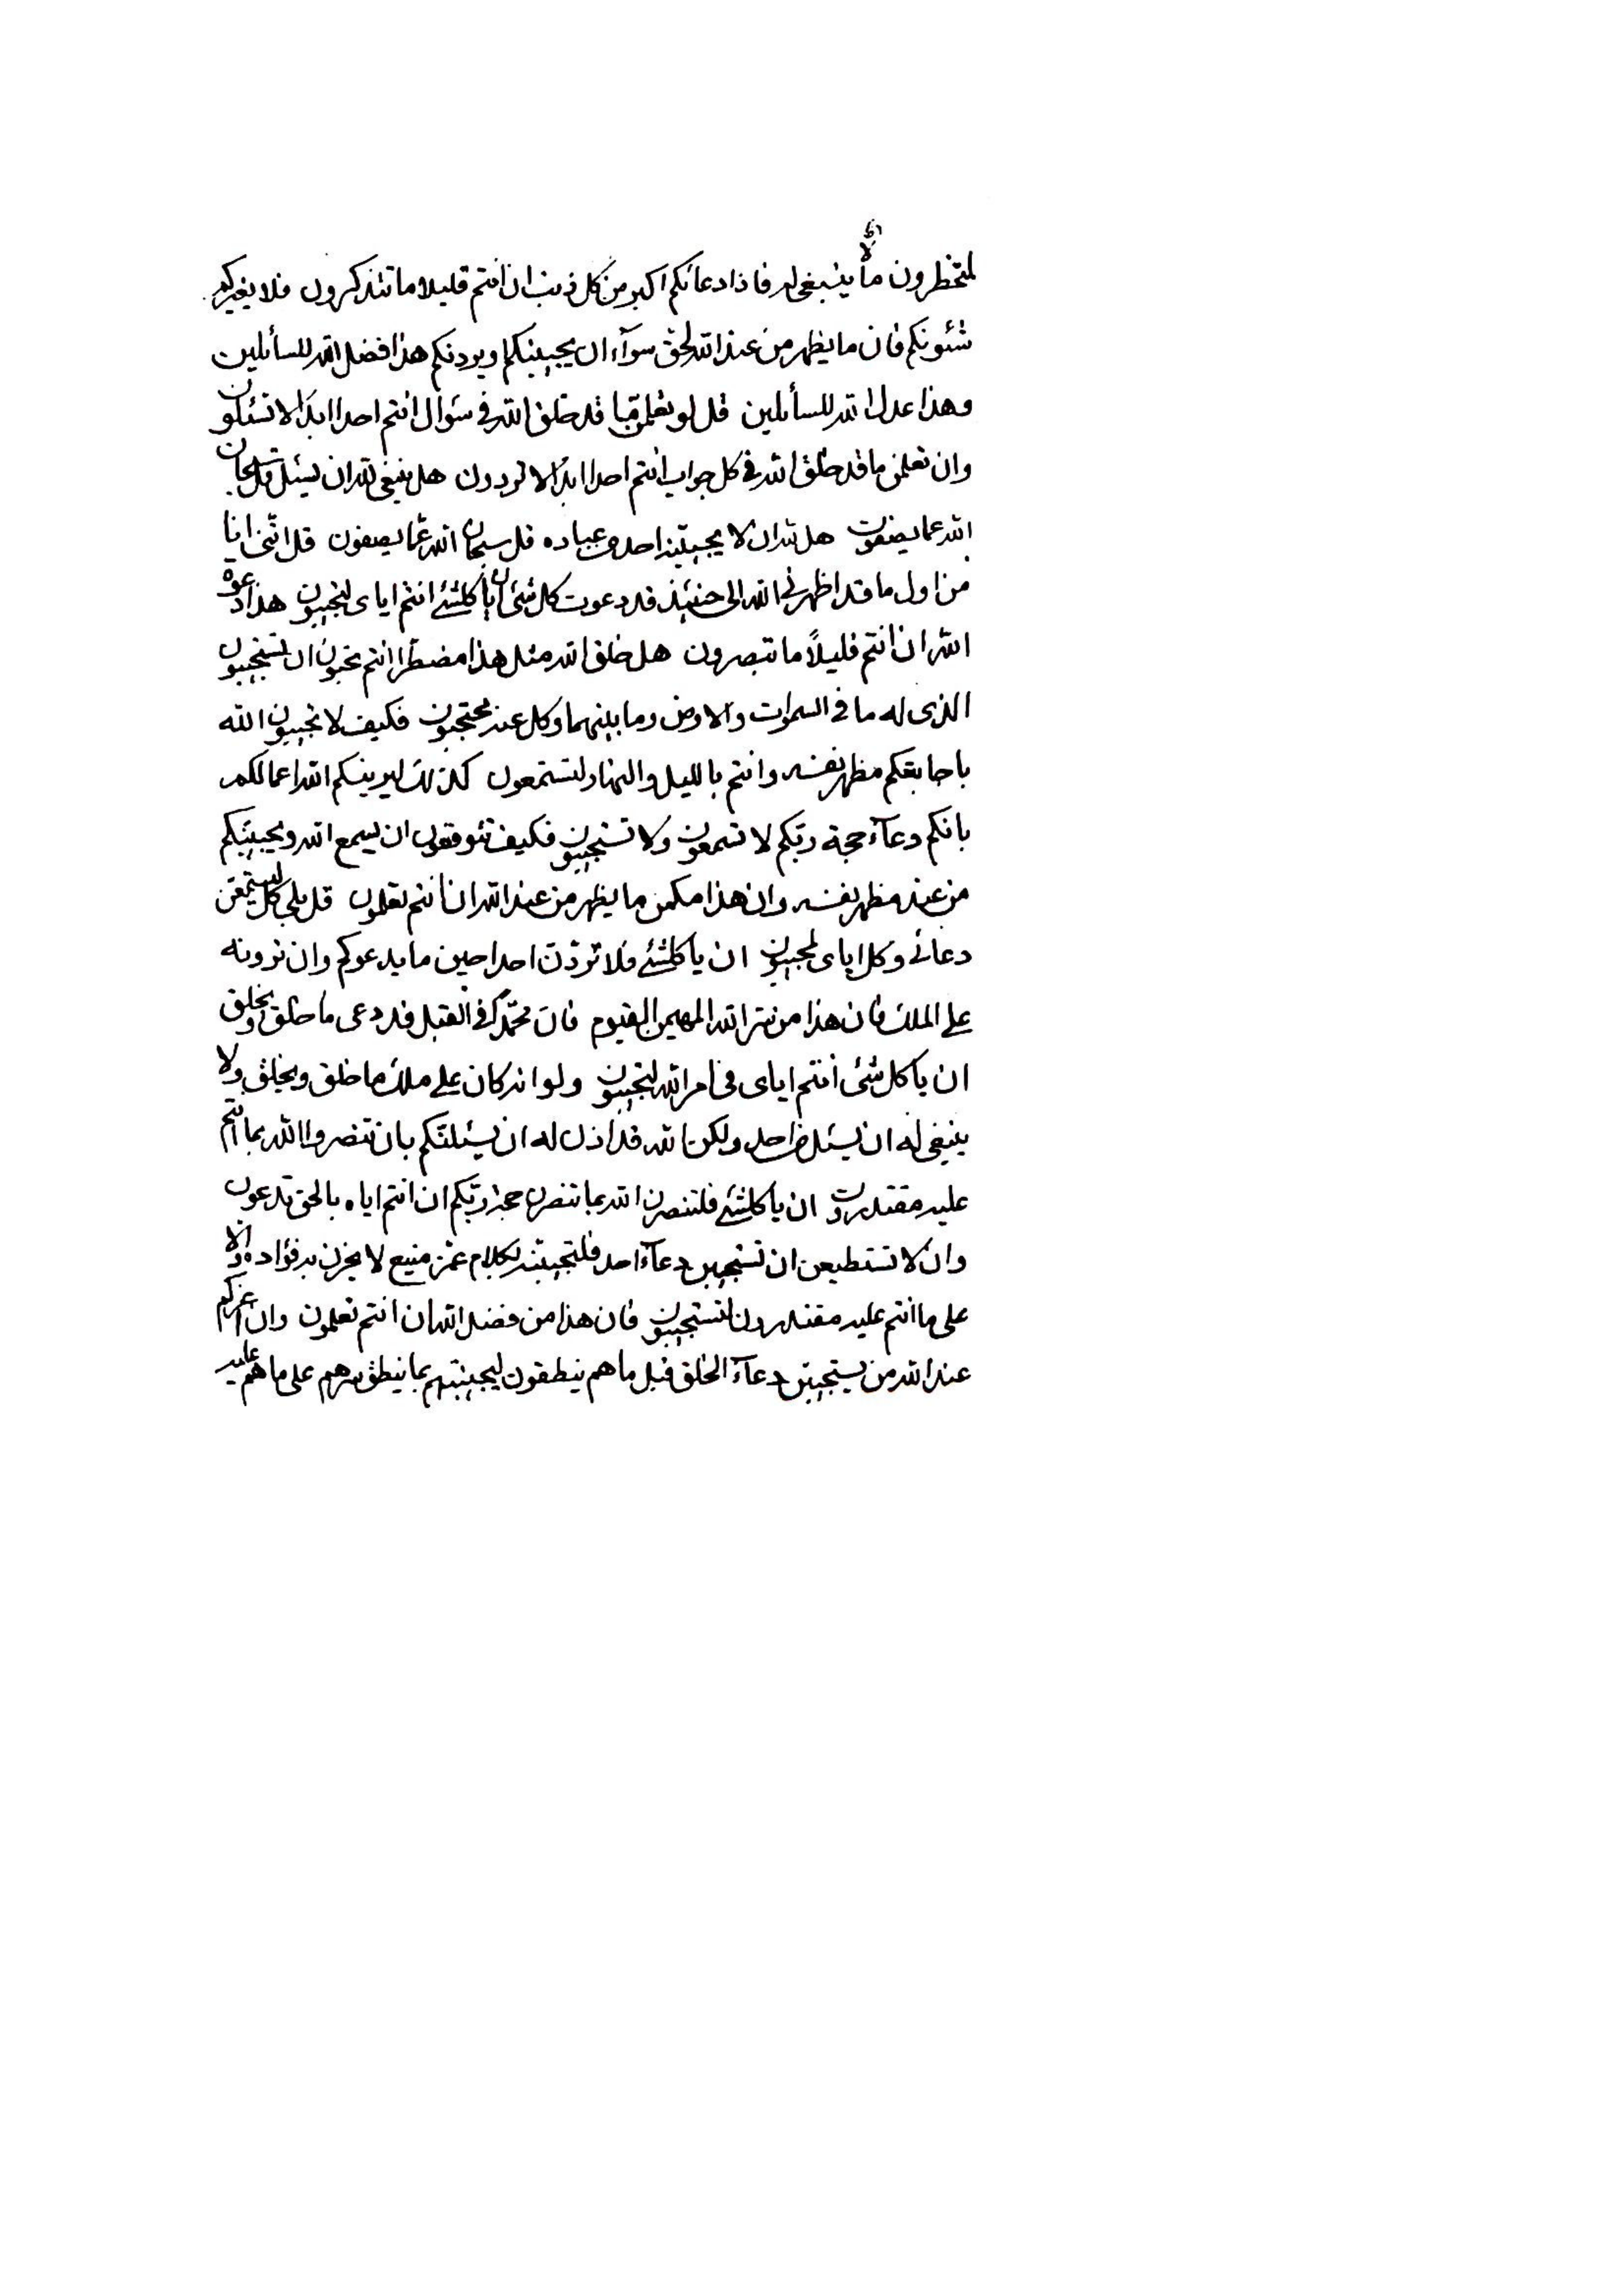 لتخطرون ما لا ينبغى له فاذا دعائكم اكبر من كل ذنب ان انتم قليلا ما تتذكرون فلا يغيركم
شئونكم فان ما يظهر من عند الله لحق سوآء ان يجيبنكم او يردنكم هذا فضل الله للسائلين
وهذا عدل الله للسائلين قل لو تعلمن ما قد خلق الله فى سئوال انتم احدا ابدا لا تسئلون
وان تعلمن ما قد خلق الله فى كل جواب انتم احدا ابدا لا تردون هل ينبغى لله ان يسئل قل سبحان
الله عما يصفون هل لله ان لا يجيبنه احد من عباده قل سبحان الله عما يصفون قل اننى انا
من اول ما قد اظهرنى الله الى حينئذ قد دعوت كل شئ ان يا كلشئ انتم اياى لتجيبون هذا دعوة
الله ان انتم قليلاً ما تبصرون هل خلق الله مثل هذا مضطرا انتم تحبون ان تستجيبون
الذى له ما فى السموات والارض وما بينهما وكل عنه محتجبون فكيف لا تجيبون الله
باجابتكم مظهر نفسه وانتم بالليل والنهار لتستمعون كذلك ليرينكم الله اعمالكم
بانكم دعآء حجة ربكم لا تسمعون ولا تستجيبون فكيف تتوقعون ان يسمع الله ويجيبنكم
من عند مظهر نفسه وان هذا ممكن ما يظهر من عند الله ان انتم تعلمون قل بلى كل ليستمعن
دعائى وكل اياى لمجيبون ان يا كلشئ فلا تردن احدا حين ما يدعوكم وان ترونه
على الملك فان هذا من سر الله المهيمن القيوم فان محمدا فى القبل قد دعى ما خلق ويخلق
ان يا كل شئ انتم اياى فى امر الله لتجيبون ولو انه كان على ملك ما خلق ويخلق ولا
ينبغى له ان يسئل من احد ولكن الله قد اذن له ان يسئلنكم بان تنصروا الله بما انتم
عليه مقتدرون ان يا كلشئ فلتنصرن الله بما تنصرن حجة ربكم ان انتم اياه بالحق تدعون
وان لا تستطيعن ان تستجيبن دعآء احد فلتجيبنه بكلام عز منيع لا يحزن به فؤاده والا
على ما انتم عليه مقتدرون لتستجيبون فان هذا من فضل الله ان انتم تعلمون وان اعزكم
عند الله من يستجيبن دعآء الخلق قبل ما هم ينطقون ليجيبنهم بما ينطق سرهم على ما هم عليه